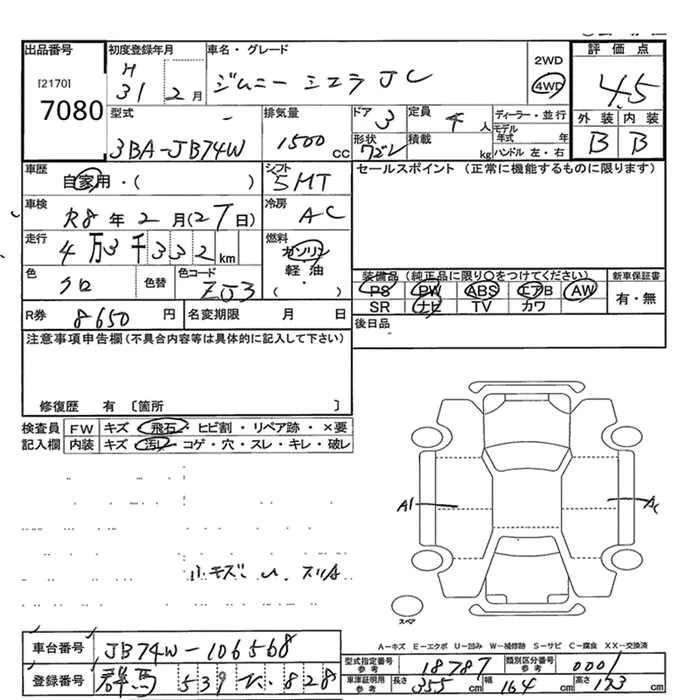 出品番号 初度登録年月 車名・グレード 評価点
[2170]
7080
H 31 2月
ジムニー シエラ JC
2WD
4WD
4.5
型式 排気量 ドア 3 定員 4人 ディーラー・並行 外装 内装
3BA-JB74W 1500cc 形状 ワゴン 積載 kg モデル年式 年 ハンドル 左・右 B B
車歴 自家用・( ) シフト 5MT セールスポイント (正常に機能するものに限ります)
車検 R8年2月(27日) 冷房 AC
走行 4万3千332km 燃料 ガソリン 軽油 ( )
色 クロ 色替 色コード ZJ3
装備品 (純正品に限り○をつけてください) 新車保証書
PS PW ABS エアB AW 有・無
SR ナビ TV カワ
R券 8650円 名変期限 月 日 後日品
注意事項申告欄 (不具合内容等は具体的に記入して下さい)
修復歴 有 [箇所 ]
検査員 FW キズ・飛石・ヒビ割・リペア跡・×要
記入欄 内装 キズ・汚レ・コゲ・穴・スレ・キレ・破レ
A1
小キズ
スペア
A-キズ E-エクボ U-凹み W-補修跡 S-サビ C-腐食 XX-交換済
車台番号 JB74W-106568
型式指定番号 参考 18787 類別区分番号 参考 0001
登録番号 群馬 539 828
車庫証明用 参考 長さ 355cm 幅 164cm 高さ 173cm